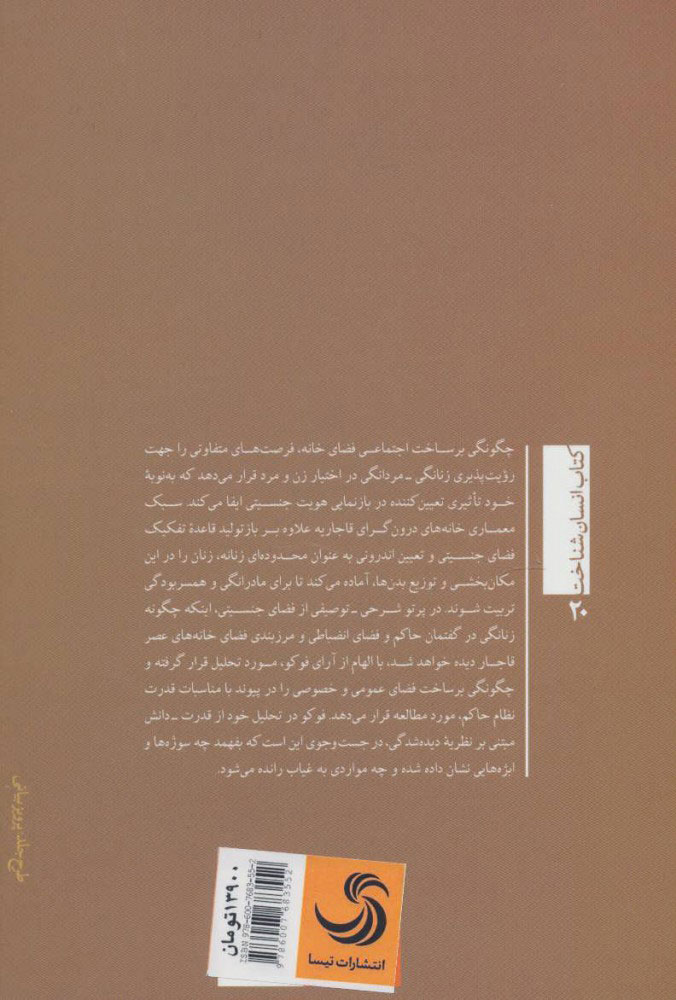 چگونگی برساخت اجتماعی فضای خانه، فرصت‌های متفاوتی را جهت
رؤیت‌پذیری زنانگی ـ مردانگی در اختیار زن و مرد قرار می‌دهد که به‌نوبهٔ
خود تأثیری تعیین‌کننده در بازنمایی هویت جنسیتی ایفا می‌کند. سبک
معماری خانه‌های درون‌گرای قاجاریه علاوه بر بازتولید قاعدهٔ تفکیک
فضای جنسیتی و تعیین اندرونی به عنوان محدوده‌ای زنانه، زنان را در این
مکان‌بخشی و توزیع بدن‌ها، آماده می‌کند تا برای مادرانگی و همسربودگی
تربیت شوند. در پرتو شرحی ـ توصیفی از فضای جنسیتی، اینکه چگونه
زنانگی در گفتمان حاکم و فضای انضباطی و مرزبندی فضای خانه‌های عصر
قاجار دیده خواهد شد، با الهام از آرای فوکو، مورد تحلیل قرار گرفته و
چگونگی برساخت فضای عمومی و خصوصی را در پیوند با مناسبات قدرت
نظام حاکم، مورد مطالعه قرار می‌دهد. فوکو در تحلیل خود از قدرت ـ دانش
مبتنی بر نظریهٔ دیده‌شدگی، در جست‌وجوی این است که بفهمد چه سوژه‌ها و
ابژه‌هایی نشان داده شده و چه مواردی به غیاب رانده می‌شود.
کتاب انسان‌شناخت
۲۰
طرح جلد: پرویز بیانی
۱۳۹۰۰ تومان
ISBN: 978-600-7683-55-2
9786007683552
انتشارات تیسا